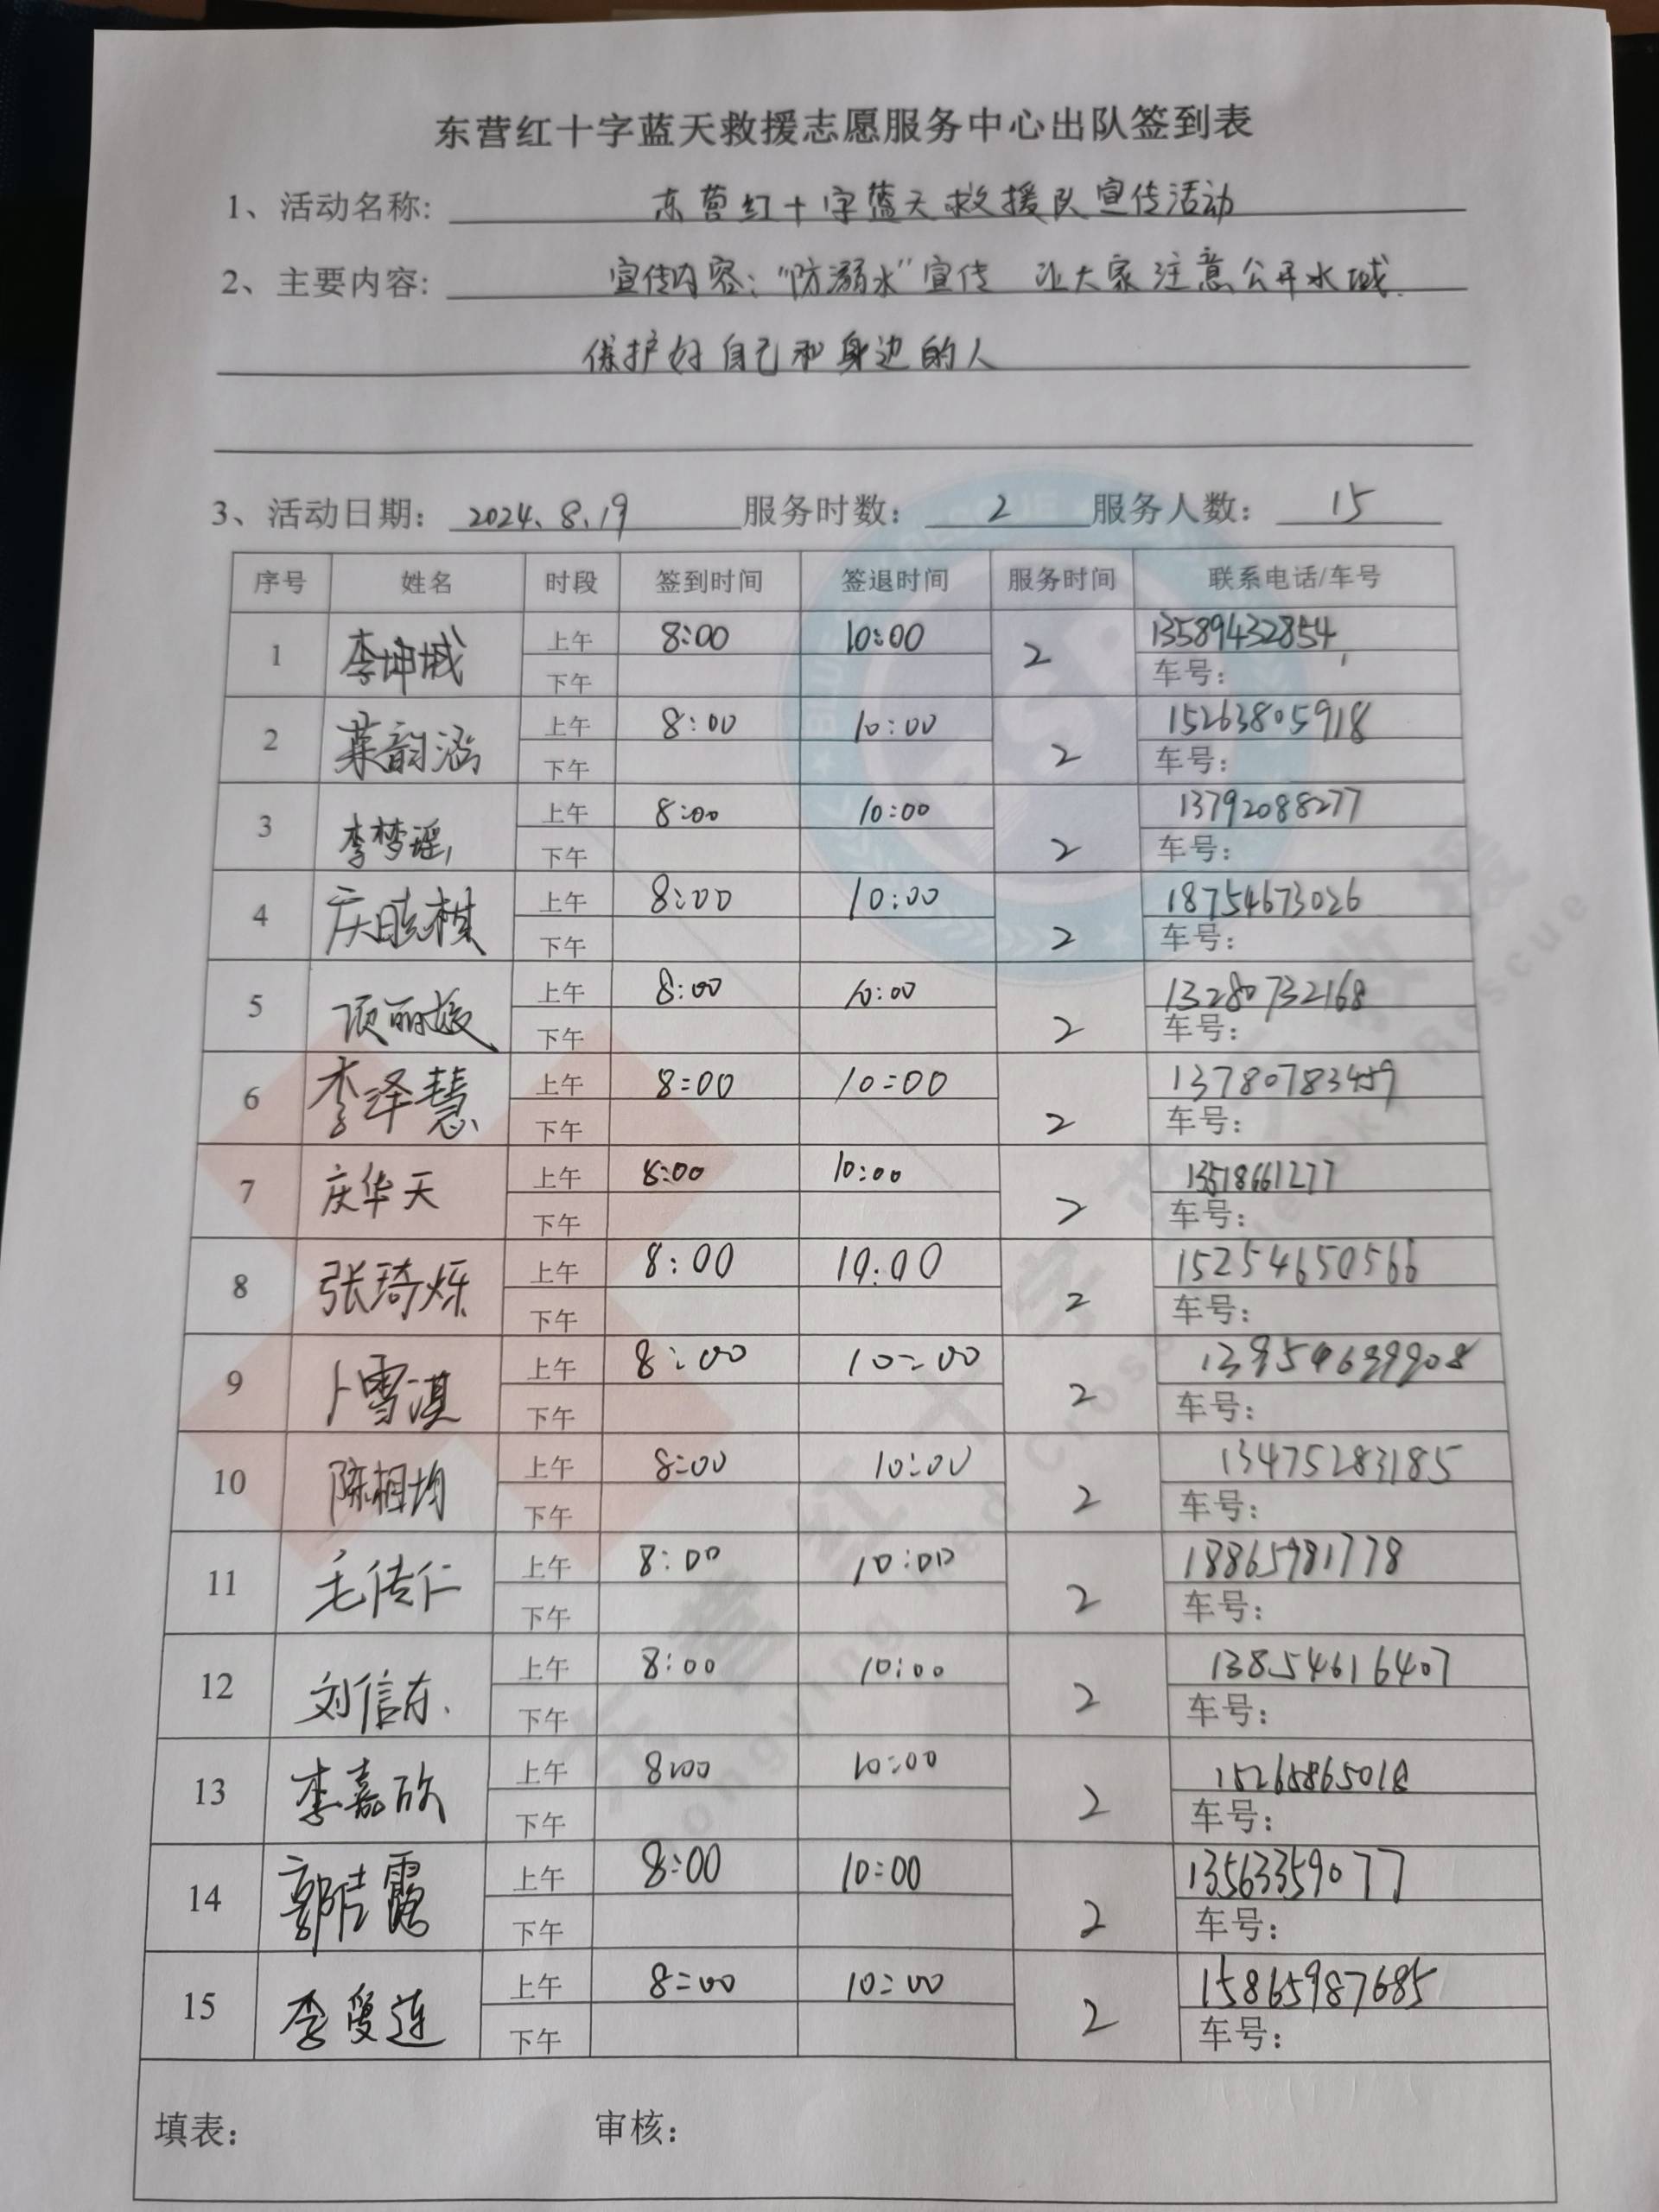 东营红十字蓝天救援志愿服务中心出队签到表
1、活动名称: 东营红十字蓝天救援队宣传活动
2、主要内容: 宣传内容："防溺水"宣传 让大家注意公开水域.
保护好自己和身边的人
3、活动日期: 2024.8.19 服务时数: 2 服务人数: 15
序号 姓名 时段 签到时间 签退时间 服务时间 联系电话/车号
1 李坤城 上午 8:00 10:00 2 13589432854
下午 车号:
2 韵涵 上午 8:00 10:00 2 15263805918
下午 车号:
3 李梦瑶 上午 8:00 10:00 2 13792088277
下午 车号:
4 庆晓棋 上午 8:00 10:00 2 18754673026
下午 车号:
5 项丽媛 上午 8:00 10:00 2 13280732168
下午 车号:
6 李泽慧 上午 8:00 10:00 2 13780783459
下午 车号:
7 庆华天 上午 8:00 10:00 2
下午 车号:
8 张琦烁 上午 8:00 10:00 2 15254650566
下午 车号:
9 卜雪淇 上午 8:00 10:00 2
下午 车号:
10 陈相均 上午 8:00 10:00 2 13475283185
下午 车号:
11 毛传仁 上午 8:00 10:00 2 18865981778
下午 车号:
12 刘信东 上午 8:00 10:00 2 13854616407
下午 车号:
13 李嘉欣 上午 8:00 10:00 2 15265865018
下午 车号:
14 郭吉霞 上午 8:00 10:00 2 13563359077
下午 车号:
15 李爱连 上午 8:00 10:00 2 15865987685
下午 车号:
填表: 审核:
东营红十字蓝天救援